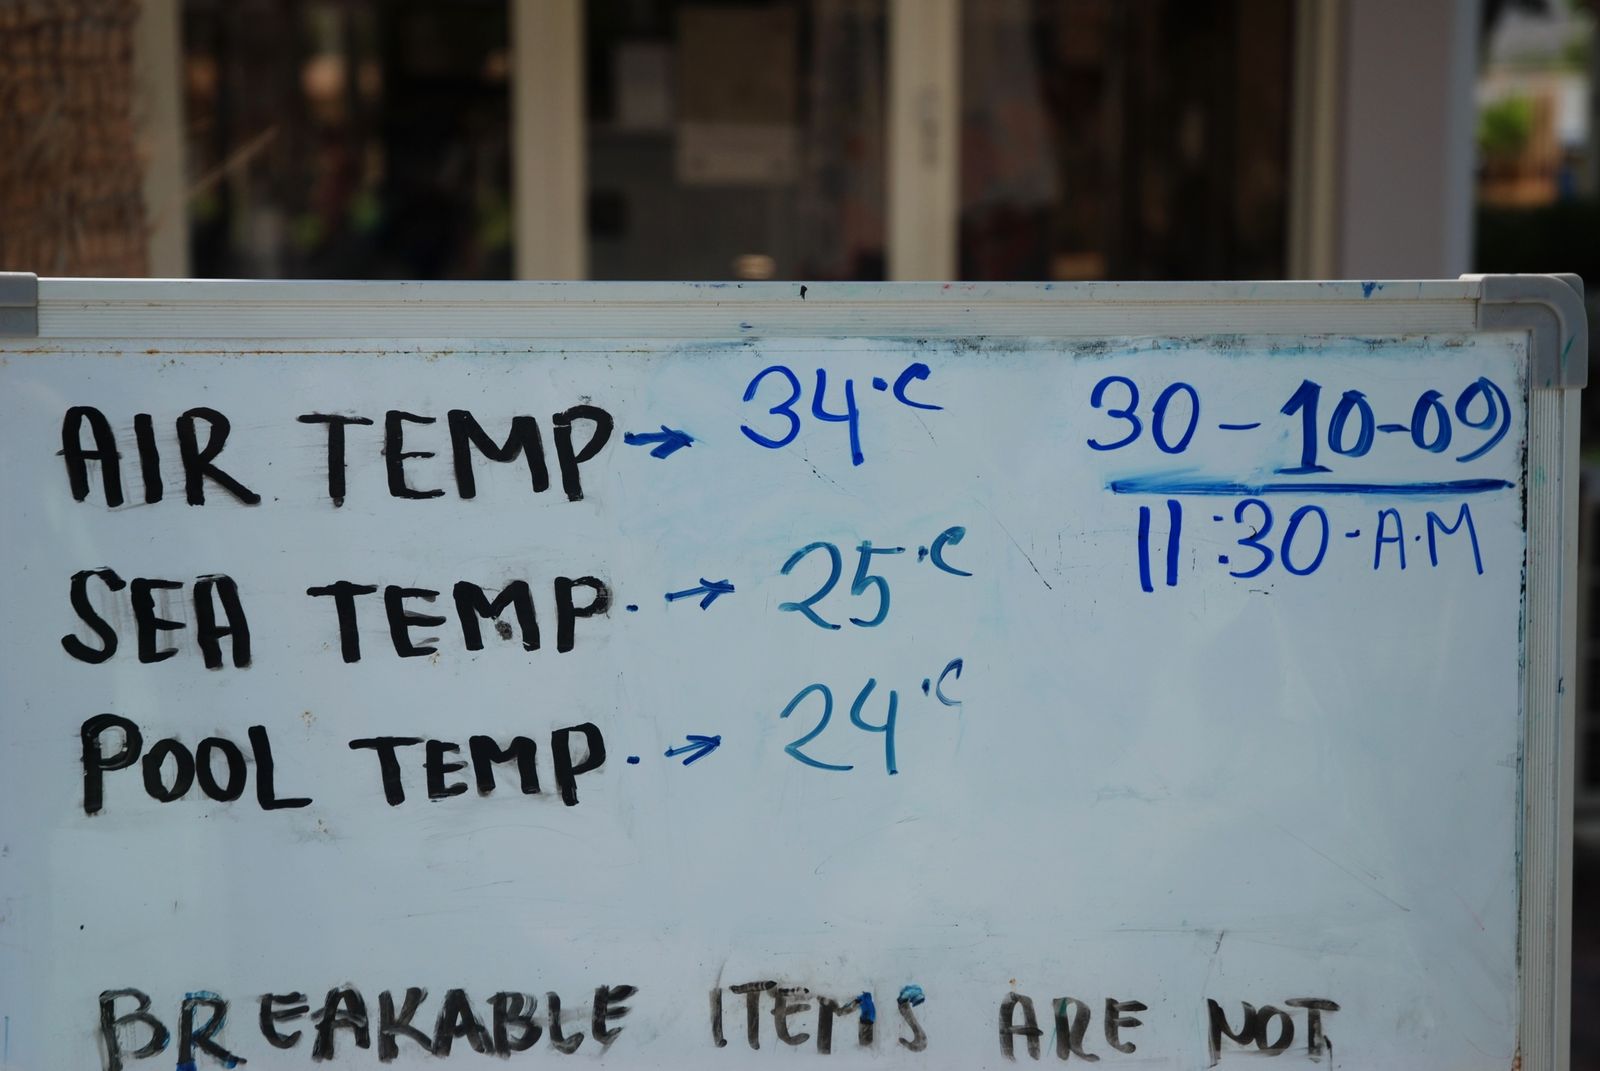 AIR TEMP → 34°C
30-10-09
11:30·A.M
SEA TEMP. → 25°C
POOL TEMP. → 24°C
BREAKABLE ITEMS ARE NOT